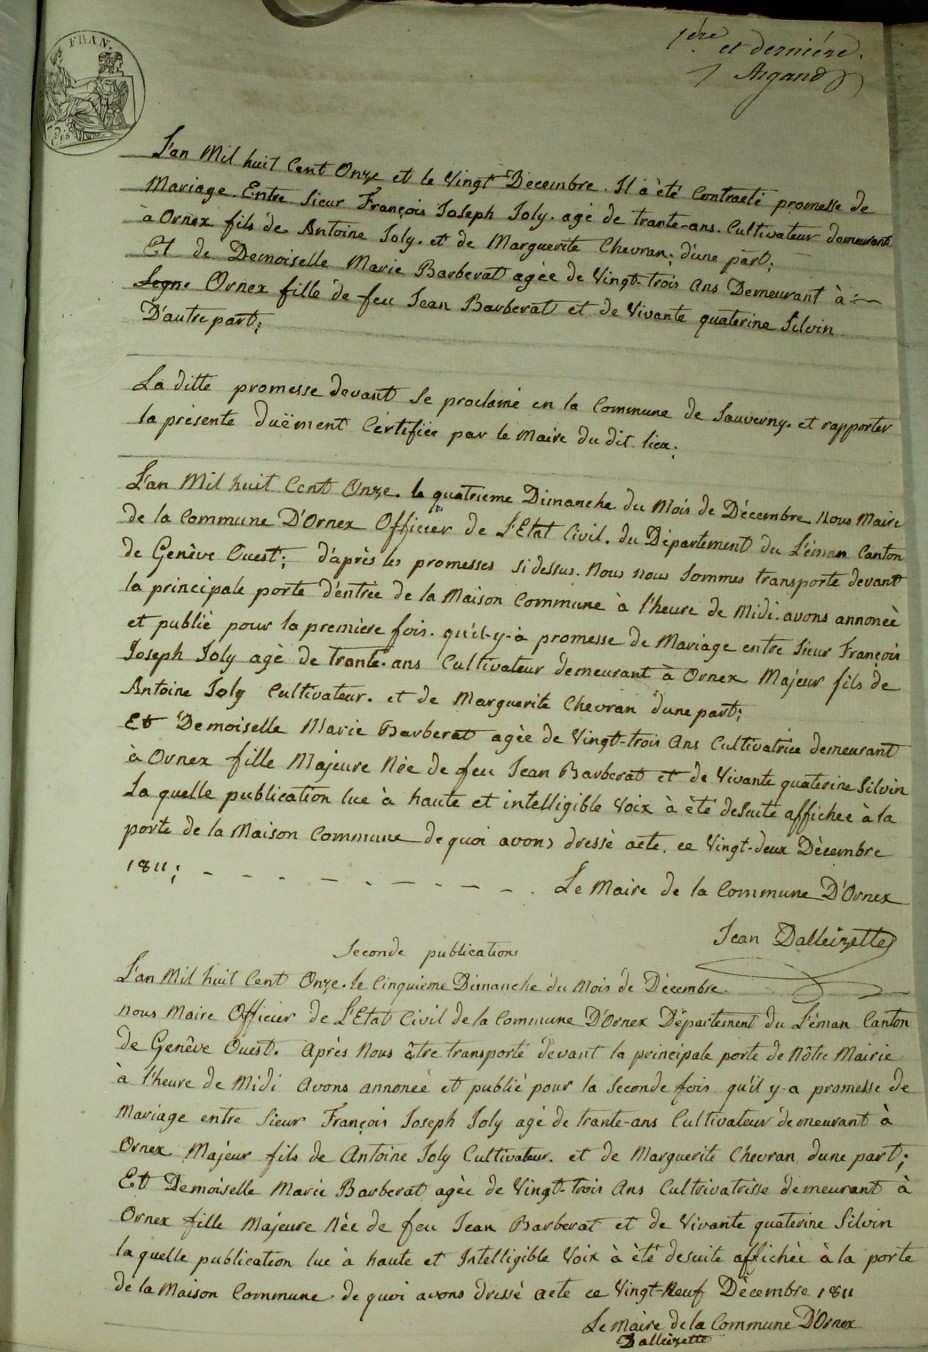 FRAN.
1ère
et dernière.
Argand
L'an Mil huit Cent Onze et le Vingt Décembre. Il à été Contracté promesse de
Mariage. Entre Sieur François Joseph Joly. agé de trante-ans. Cultivateur demeurant
à Ornex fils de Antoine Joly. et de Marguerite Chevran; d'une part;
Et de Demoiselle Marie Barberat agée de Vingt-trois Ans Demeurant à
Ornex fille de feu Jean Barberat et de Vivante quaterine Silvin
D'autre part;
La ditte promesse devant Se proclamé en la Commune de Sauverny. et rapporter
la présente duëment Certifiée par le Maire du dit lieu.
L'an Mil huit Cent Onze. le quatrieme Dimanche du Mois de Décembre Nous Maire
de la Commune D'Ornex Officier de L'Etat Civil. du Département du Léman Canton
de Genêve Ouest; d'après les promesses si dessus. Nous nous Sommes transporté devant
la principale porte d'entrée de la Maison Commune à l'heure de Midi. avons annoncè
et publié pour la première fois. qu'il-y-à promesse de Mariage entre Sieur François
Joseph Joly agè de trante-ans Cultivateur demeurant à Ornex Majeur fils de
Antoine Joly Cultivateur. et de Marguerite Chevran d'une part;
Et Demoiselle Marie Barberat agèe de Vingt-trois Ans Cultivatrice demeurant
à Ornex fille Majeure Nèe de feu Jean Barberat et de Vivante quaterine Silvin
La quelle publication lue à haute et intelligible Voix à ètè deSuite affichée à la
porte de la Maison Commune de quoi avons dressè acte. ce Vingt-deux Dècembre
1811; - - - - - - - - - . Le Maire de la Commune D'Ornex
Jean Dalleizette
Seconde publications
L'an Mil huit Cent Onze. le Cinquieme Dimanche du Mois de Décembre
Nous Maire Officier de L'Etat Civil de la Commune D'Ornex Département du Léman Canton
de Genêve Ouest. Après Nous être transporté devant la principale porte de Nôtre Mairie
à l'heure de Midi Avons annoncé et publié pour la Seconde fois qu'il y-a promesse de
Mariage entre Sieur François Joseph Joly agé de trante-ans Cultivateur demeurant à
Ornex Majeur fils de Antoine Joly Cultivateur. et de Marguerite Chevran dune part;
Et Demoiselle Marie Barberat agèe de Vingt-trois Ans Cultrivatrisse demeurant à
Ornex fille Majeure Nèe de feu Jean Barberat et de Vivante quaterine Silvin
la quelle publication lue à haute et Intelligible Voix à èté desuite affichèe à la porte
de la Maison Commune de quoi avons dressé acte ce Vingt-Neuf Dècembre 1811
Le Maire de la Commune D'Ornex
Dalleizette